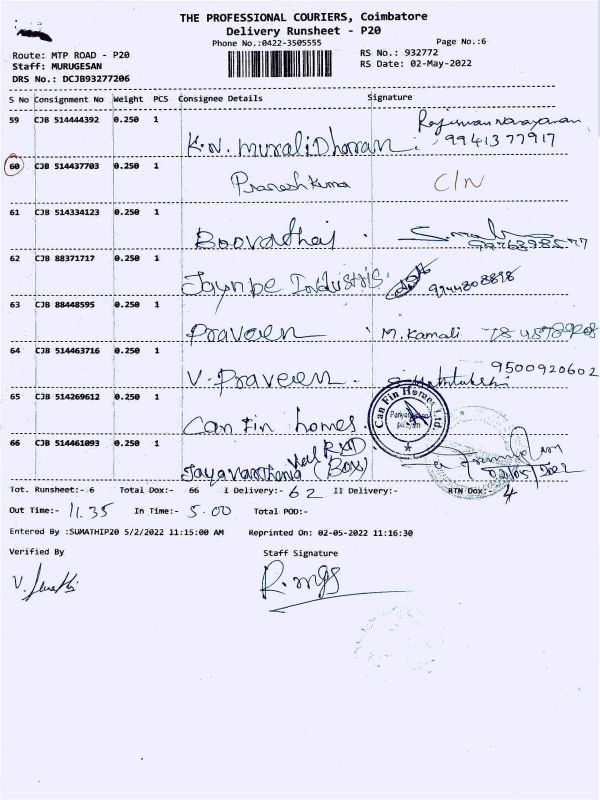 THE PROFESSIONAL COURIERS, Coimbatore
Delivery Runsheet - P20
Phone No.:0422-3505555
Page No.:6
Route: MTP ROAD - P20
RS No.: 932772
Staff: MURUGESAN
RS Date: 02-May-2022
DRS No.: DCJB93277206
S No Consignment No Weight PCS Consignee Details Signature
59 CJB 514444392 0.250 1 K.N. muraliDharan. 9941377917
60 CJB 514437703 0.250 1 Pranesh Kumar C/N
61 CJB 514334123 0.250 1 Boovathaj
62 CJB 88371717 0.250 1 Jaynbe Industris. 9944808898
63 CJB 88448595 0.250 1 Praveen M. Kamali
64 CJB 514463716 0.250 1 V. Praveen. 9500920602
65 CJB 514269612 0.250 1 Can Fin homes. Can Fin Homes Ltd.
66 CJB 514461093 0.250 1 (Box) 02/05/2022
Tot. Runsheet:- 6 Total Dox:- 66 I Delivery:- 62 II Delivery:- RTN Dox:- 4
Out Time:- 11.35 In Time:- 5.00 Total POD:-
Entered By :SUMATHIP20 5/2/2022 11:15:00 AM Reprinted On: 02-05-2022 11:16:30
Verified By Staff Signature